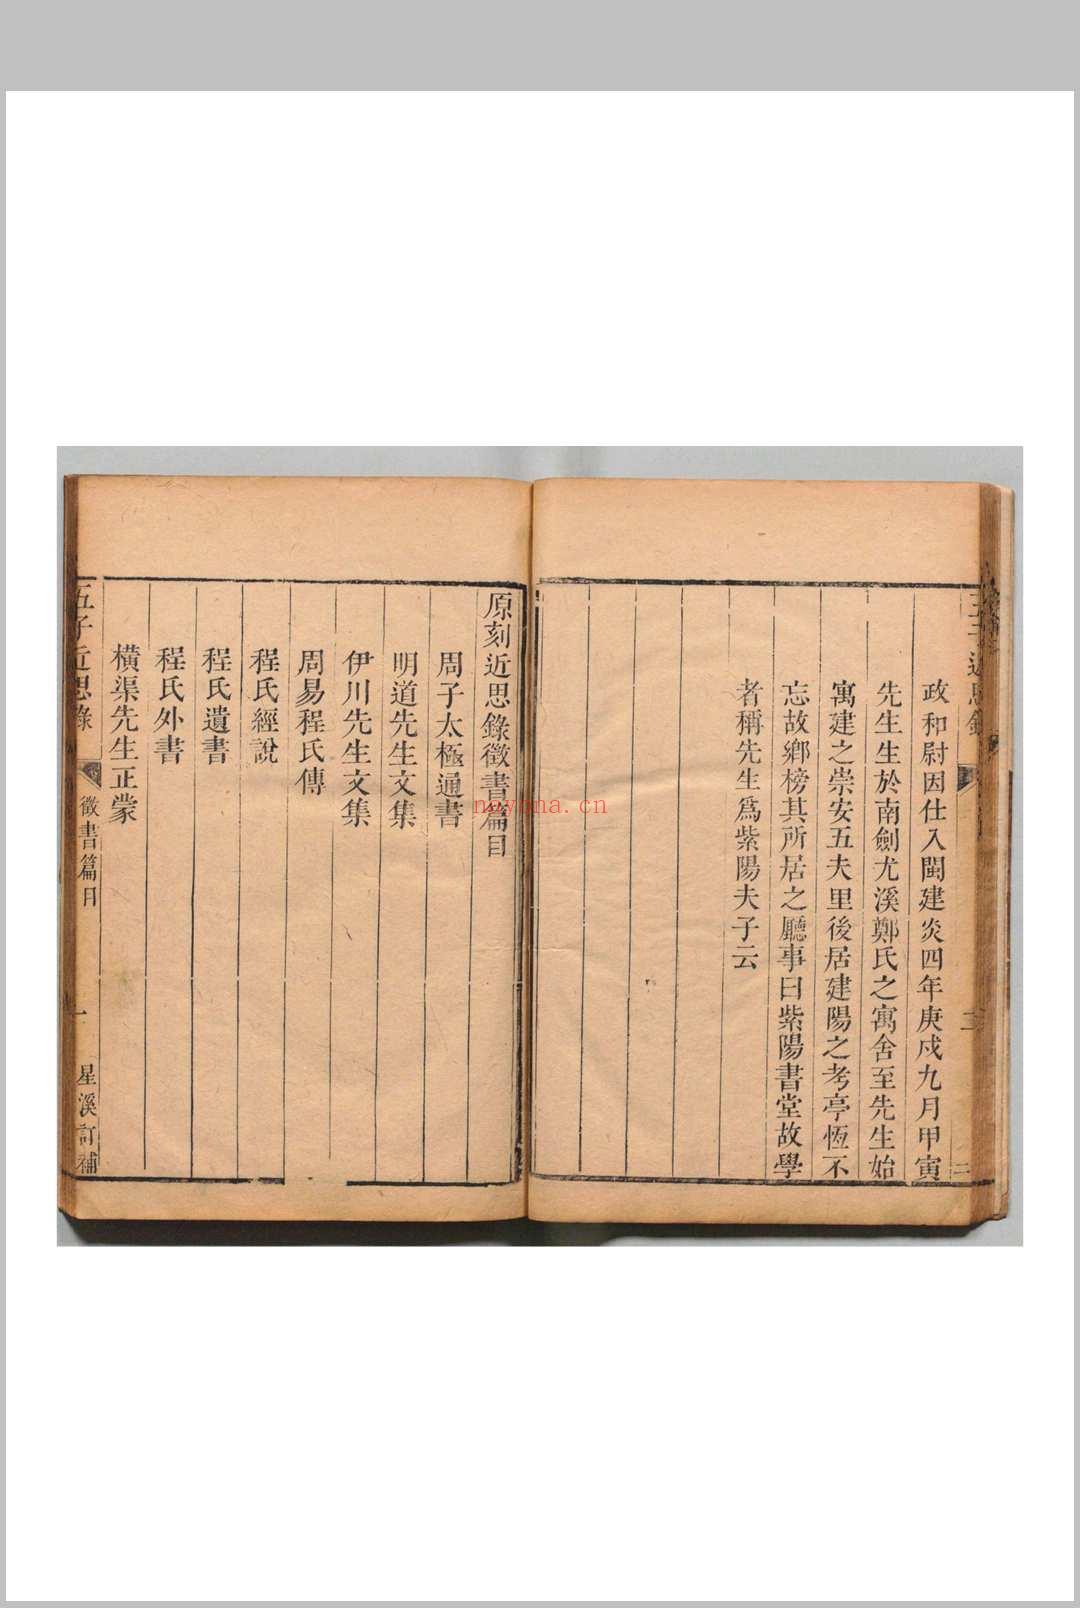 五子近思錄
二
政和尉因仕入閩建炎四年庚戍九月甲寅
先生生於南劍尤溪鄭氏之寓舍至先生始
寓建之崇安五夫里後居建陽之考亭恆不
忘故鄉榜其所居之廳事曰紫陽書堂故學
者稱先生爲紫陽夫子云
原刻近思錄徵書篇目
周子太極通書
明道先生文集
伊川先生文集
周易程氏傳
程氏經說
程氏遺書
程氏外書
橫渠先生正蒙
五子近思錄 徵書篇目 一 星溪訂補
nayona.cn